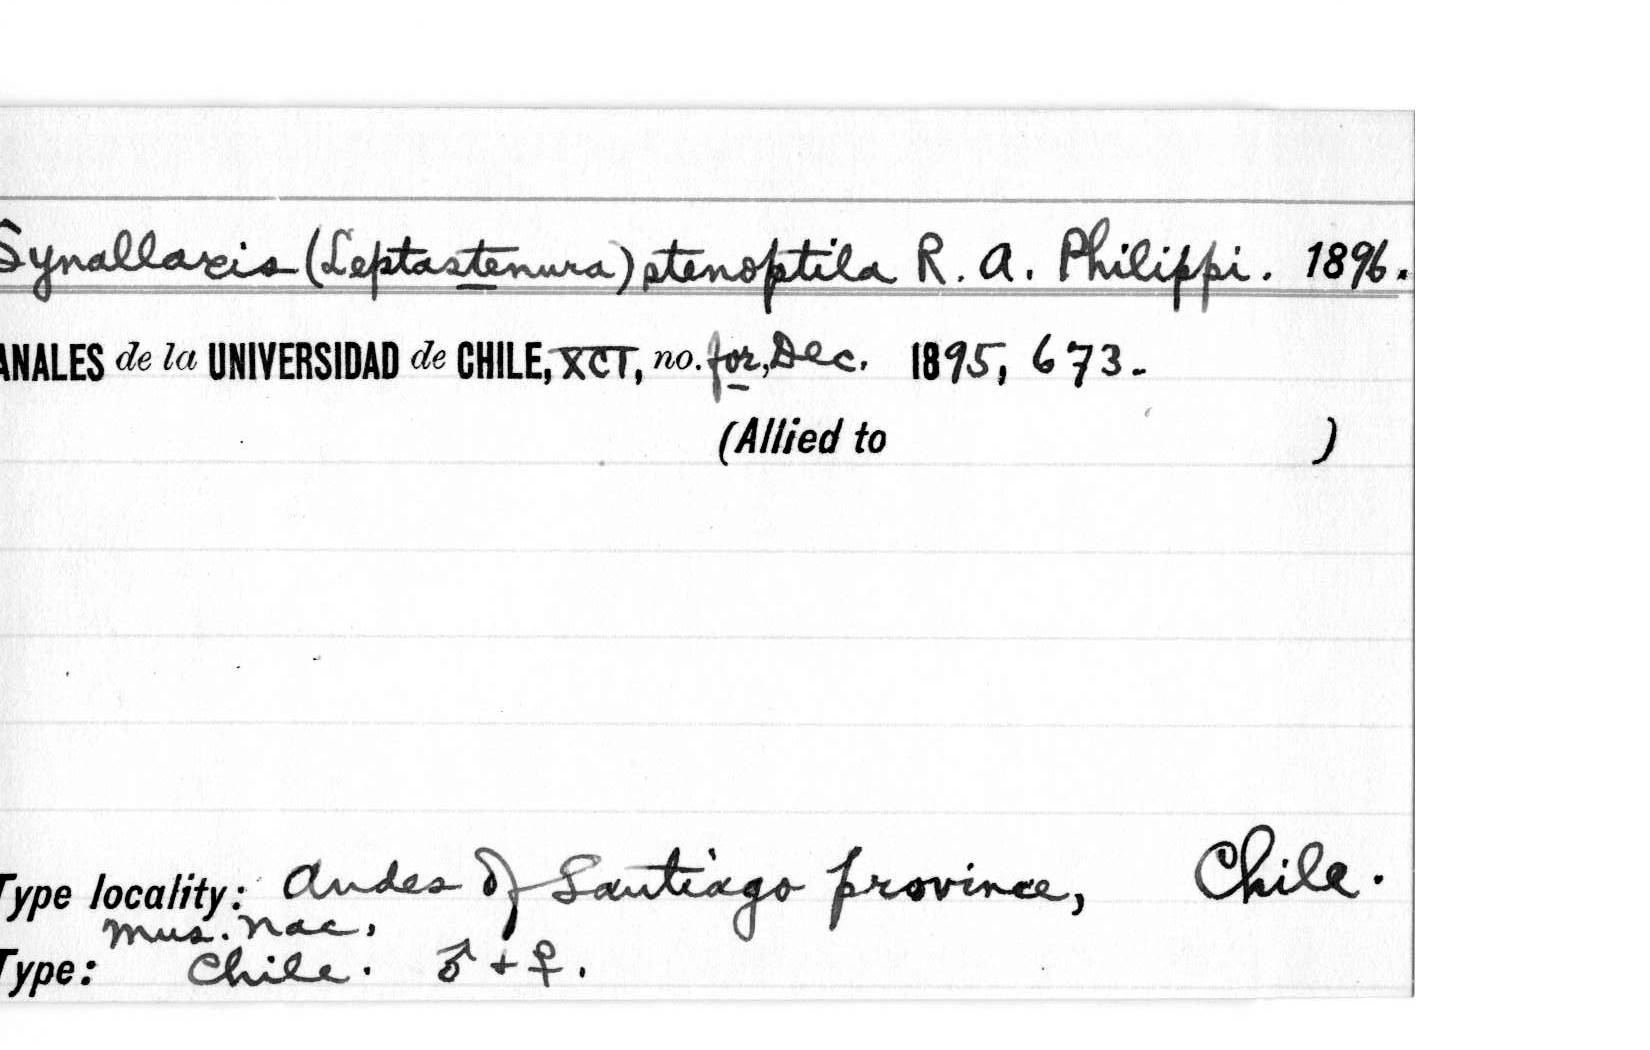 Synallaxis (Leptastenura) stenoptila R. A. Philippi. 1896.
ANALES de la UNIVERSIDAD de CHILE, XCI, no. for, Dec. 1895, 673.
(Allied to )
Type locality: Andes of Santiago province, Chile.
Mus. Nac.
Type: Chile. ♂ + ♀.